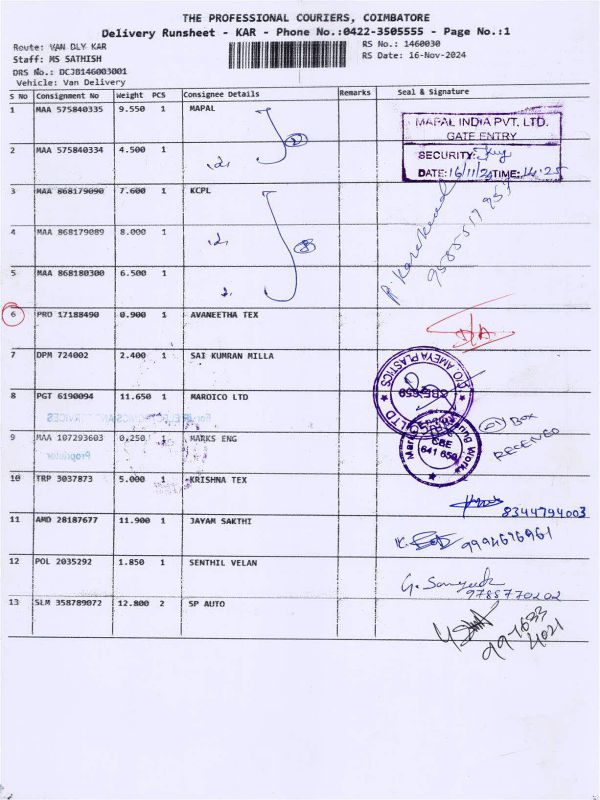 THE PROFESSIONAL COURIERS, COIMBATORE
Delivery Runsheet - KAR - Phone No.:0422-3505555 - Page No.:1
Route: VAN DLY KAR
RS No.: 1460030
Staff: MS SATHISH
RS Date: 16-Nov-2024
DRS No.: DCJB146003001
Vehicle: Van Delivery
S No Consignment No Weight PCS Consignee Details Remarks Seal & Signature
1 MAA 575840335 9.550 1 MAPAL
MAPAL INDIA PVT. LTD.
GATE ENTRY
2 MAA 575840334 4.500 1
SECURITY:
DATE: 16/11/24 TIME: 14:25
3 MAA 868179090 7.600 1 KCPL
4 MAA 868179089 8.000 1
5 MAA 868180300 6.500 1
6 PRO 17188490 0.900 1 AVANEETHA TEX
D/A
7 DPM 724002 2.400 1 SAI KUMRAN MILLA
C/O AMEYA PLASTICS
CBE-659
LTD
8 PGT 6190094 11.650 1 MAROICO LTD
BOX
RECEIVED
9 MAA 107293603 0,250 1 MARKS ENG
Proprietor
CBE
641 659
10 TRP 3037873 5.000 1 KRISHNA TEX
8344794003
11 AMD 28187677 11.900 1 JAYAM SAKTHI
9994676961
12 POL 2035292 1.850 1 SENTHIL VELAN
9788770202
13 SLM 358789072 12.800 2 SP AUTO